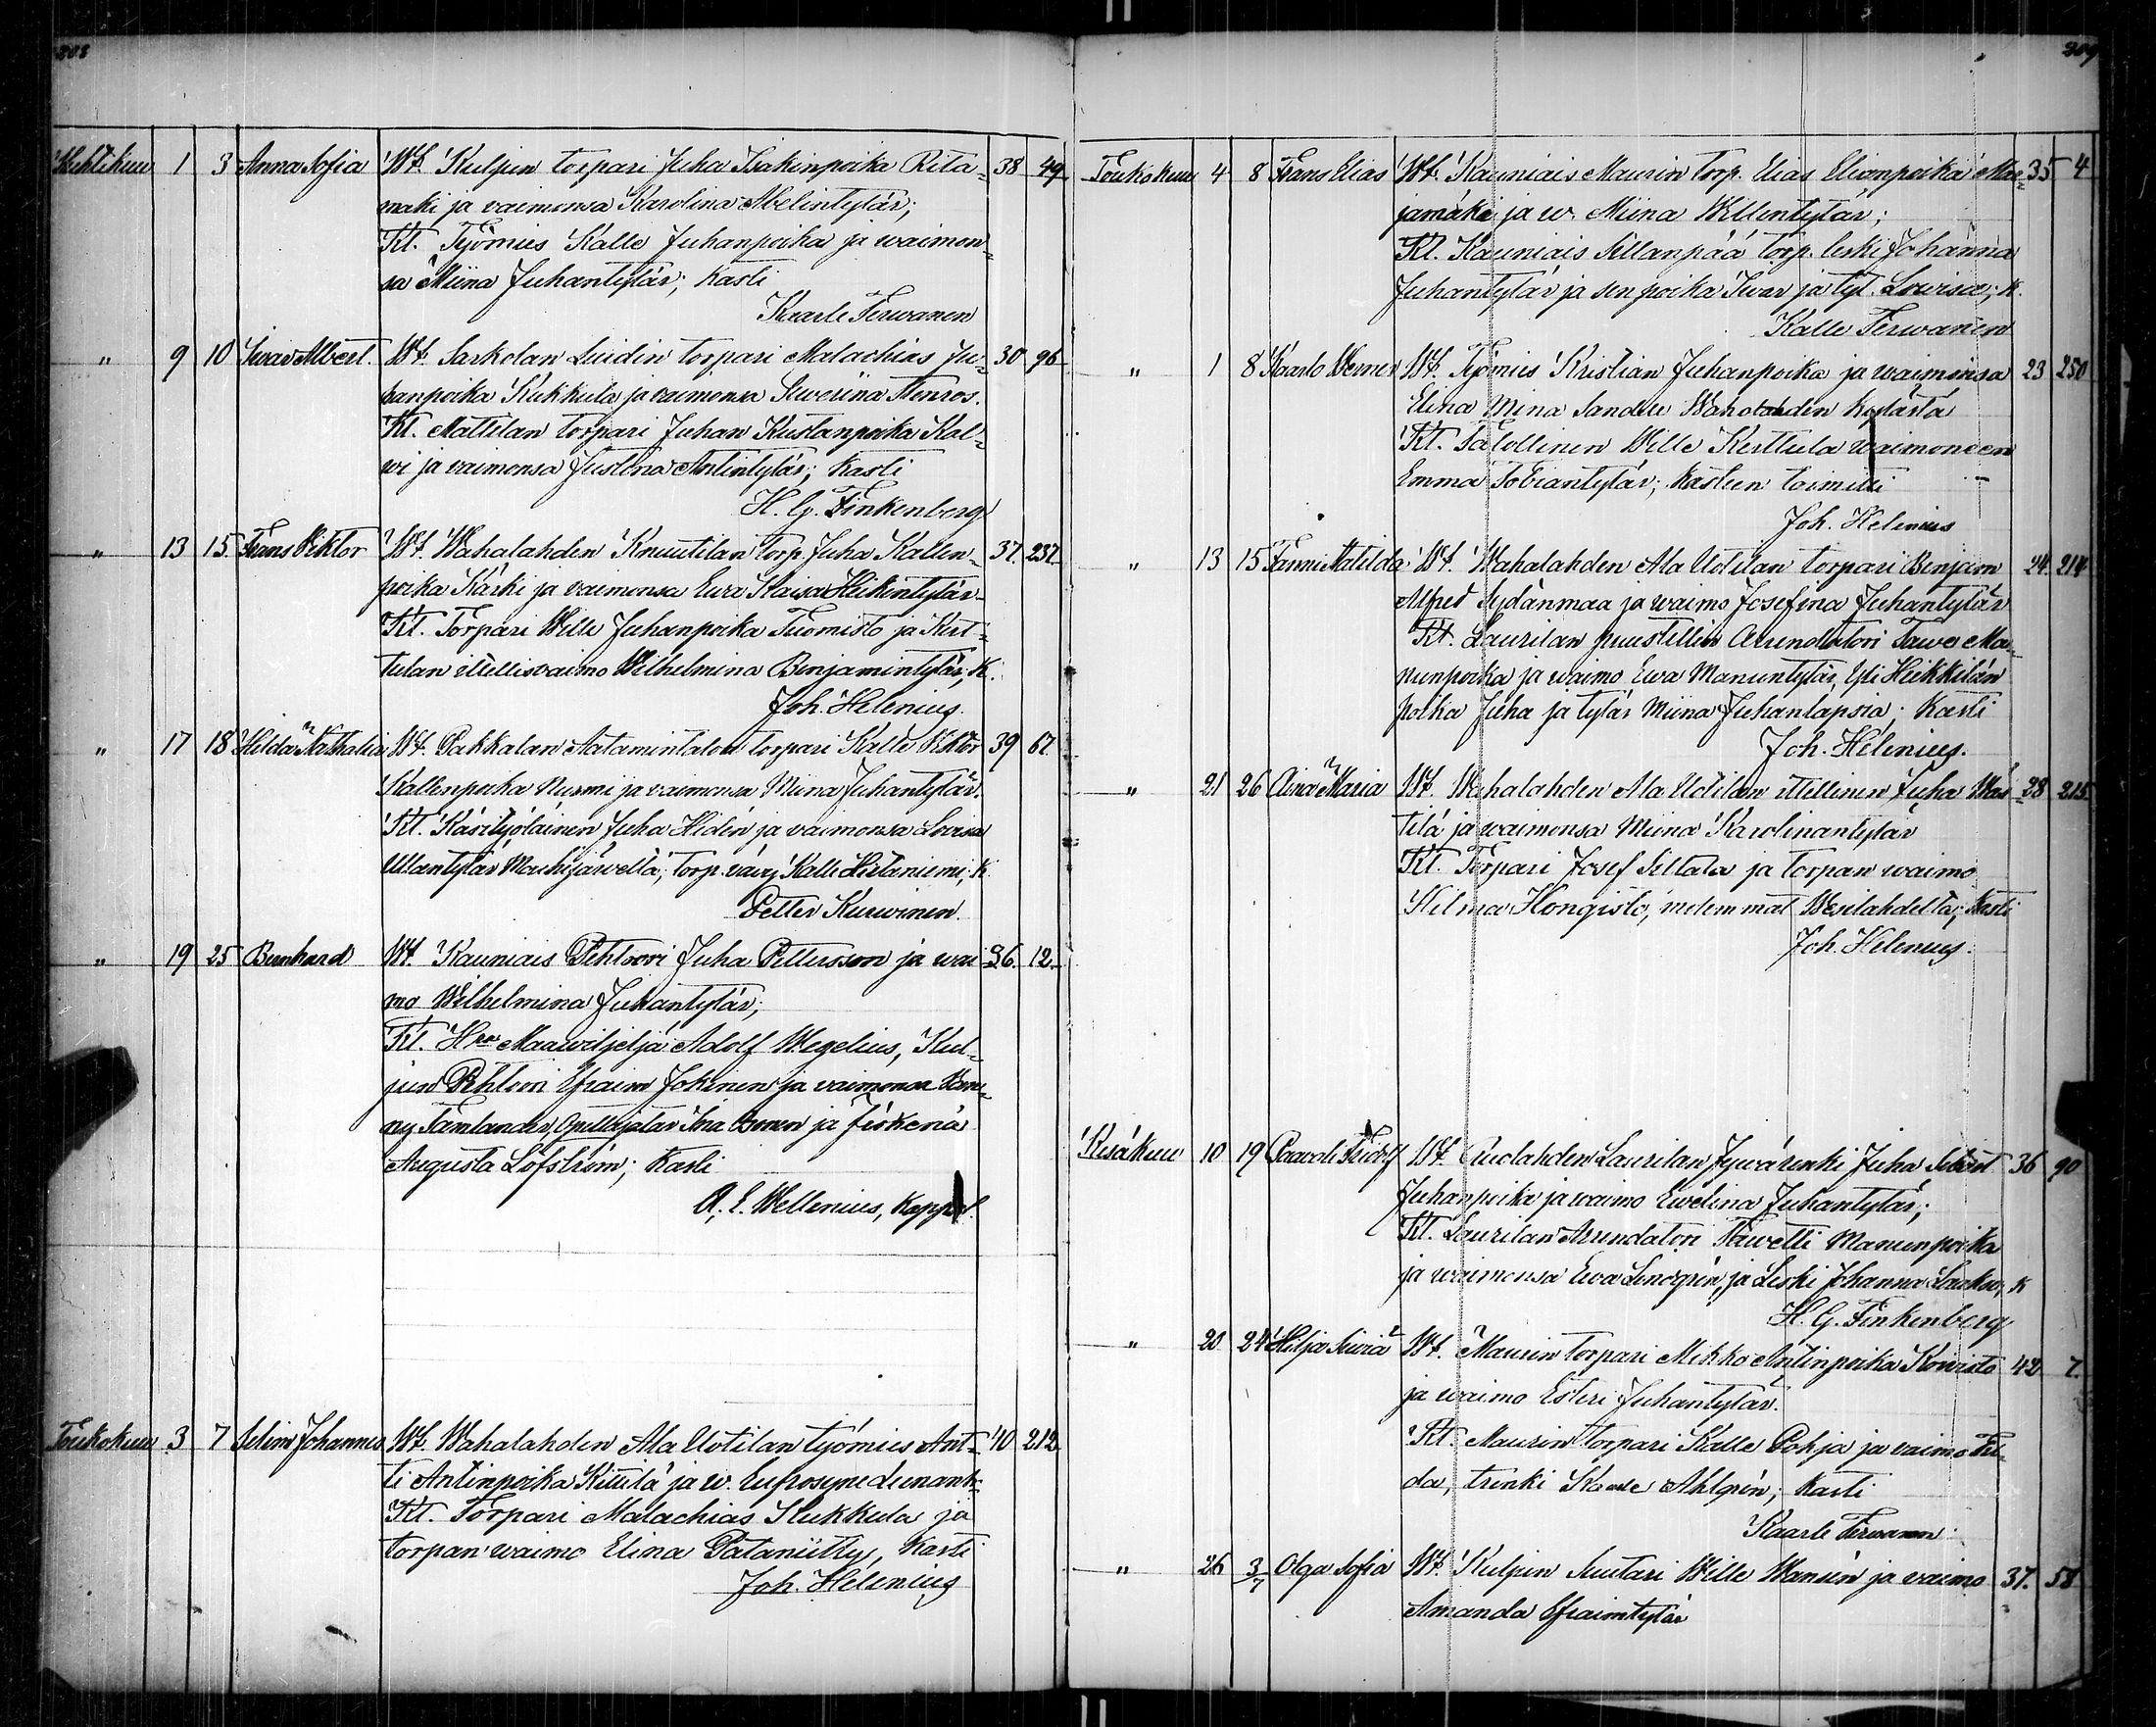 208
Huhtikuu 1 3 Anna Sofia Wt. Kulpin torpari Juha Isakinpoika Rita- 38 49
maki ja vaimonsa Karolina Abelintytär;
Kt. Työmies Kalle Juhanpoika ja waimon-
sa Miina Juhantytär; kasti
Kaarle Terwanen
" 9 10 Iwar Albert. Wt. Sarkolan Luidin torpari Malachias Ju- 30 96
hanpoika Kukkula ja vaimonsa Sewerina Stenros.
Kt. Mattilan torpari Juhan Kustanpoika Kal-
wi ja vaimonsa Justina Antintytär; kasti
H. G. Finkenberg
" 13 15 Frans Viktor Wt. Wahalahden Knuutilan torp. Juha Kallen- 37. 237.
poika Kärki ja vaimonsa Ewa Kaisa Heikintytär
Kt. Torpari Wille Juhanpoika Tuomisto ja Kert-
tulan itellisvaimo Wilhelmina Benjamintytär; K.
Joh. Helenius.
" 17 18 Hilda Nathalia Wt. Pakkalan Aatamintalon torpari Kalle Viktor 39 67.
Kallenpoika Nurmi ja vaimonsa Miina Juhantytär.
Kt. Käsityöläinen Juha Hidén ja vaimonsa Lovisa
Ullantytär Mouhijärwellä; torp. vävy Kalle Hirtaniemi; K.
Petter Kurwinen.
" 19 25 Bernhard Wt. Kauniais Pehtoori Juha Pettersson ja wai- 36. 12.
mo Wilhelmina Juhantytär;
Kt. Hra Maawiljeljä Adolf Wegelius, Kul-
jun Pehtoori Efraim Jokinen ja vaimonsa
Tamlander, Opettajatar ja
Augusta Löfström; kasti
A. E. Wellenius, Kappal.
Toukokuu 3 7 Selim Johannes Wt. Wahalahden Ala Uotilan työmies Ant- 40 212
ti Antinpoika Kittilä ja w. Eufrosyne
Kt. Torpari Malachias Kukkula ja
torpan waimo Elina Pataniitty, kasti
Joh. Helenius
209
Toukokuu 4 8 Frans Elias Wt. Kauniais Maurin torp. Elias Elianpoika Ma- 35 4
jamäki ja w. Miina Willentytär;
Kt. Kauniais Sillanpää torp. leski Johanna
Juhantytär ja sen poika Iwar ja tyt. Lovisa; K.
Kalle Terwanen
" 1 8 Kaarlo Werner Wt. Työmies Kristian Juhanpoika ja waimonsa 23 250
Elina Mina Sandra Wahalahden kylästä
Kt. Itellinen Wille Kerttula waimoneen
Emma Tobiantytär; kasteen toimitti
Joh. Helenius
" 13 15 Fanni Matilda Wt. Wahalahden Ala Uotilan torpari Benjam 24. 214
Alfred Sydänmaa ja waimo Josefina Juhantytär
Kt. Laurilan puustellin Arendatori Tawe Ma-
nunpoika ja waimo Ewa Manuntytär, Yli Heikkilän
poika Juha ja tytär Miina Juhanlapsia; kasti
Joh. Helenius.
" 21 26 Aina Maria Wt. Wahalahden Ala Uotilan itellinen Juha Mat- 28 215.
tila ja waimonsa Miina Karolinantytär
Kt. Torpari Josef Siltala ja torpan waimo
Hilma Hongisto, molemmat Wesilahdelta; kasti
Joh. Helenius.
Kesäkuu 10 19 Paavali Fridolf Wt. Laurilan Jywärenki Juha 36 90
Juhanpoika ja waimo Ewelina Juhantytär;
Kt. Laurilan Arendatori Taawetti Manunpoika
ja waimonsa Ewa Lindgren, ja Leski Johanna Laakso; K
H. G. Finkenberg
" 20 24 Hilja Siviä Wt. Maurin torpari Mikko Antinpoika Koivisto 42 7.
ja waimo Esteri Juhantytär.
Kt. Maurin torpari Kalle Pohja ja vaimo Fil-
da, trenki Kaarle Ahlgrén; kasti
Kaarle Terwanen
" 26 3/7 Olga Sofia Wt. Kulpin Suutari Wille Wanén ja vaimo 37. 58
Amanda Efraimtytär